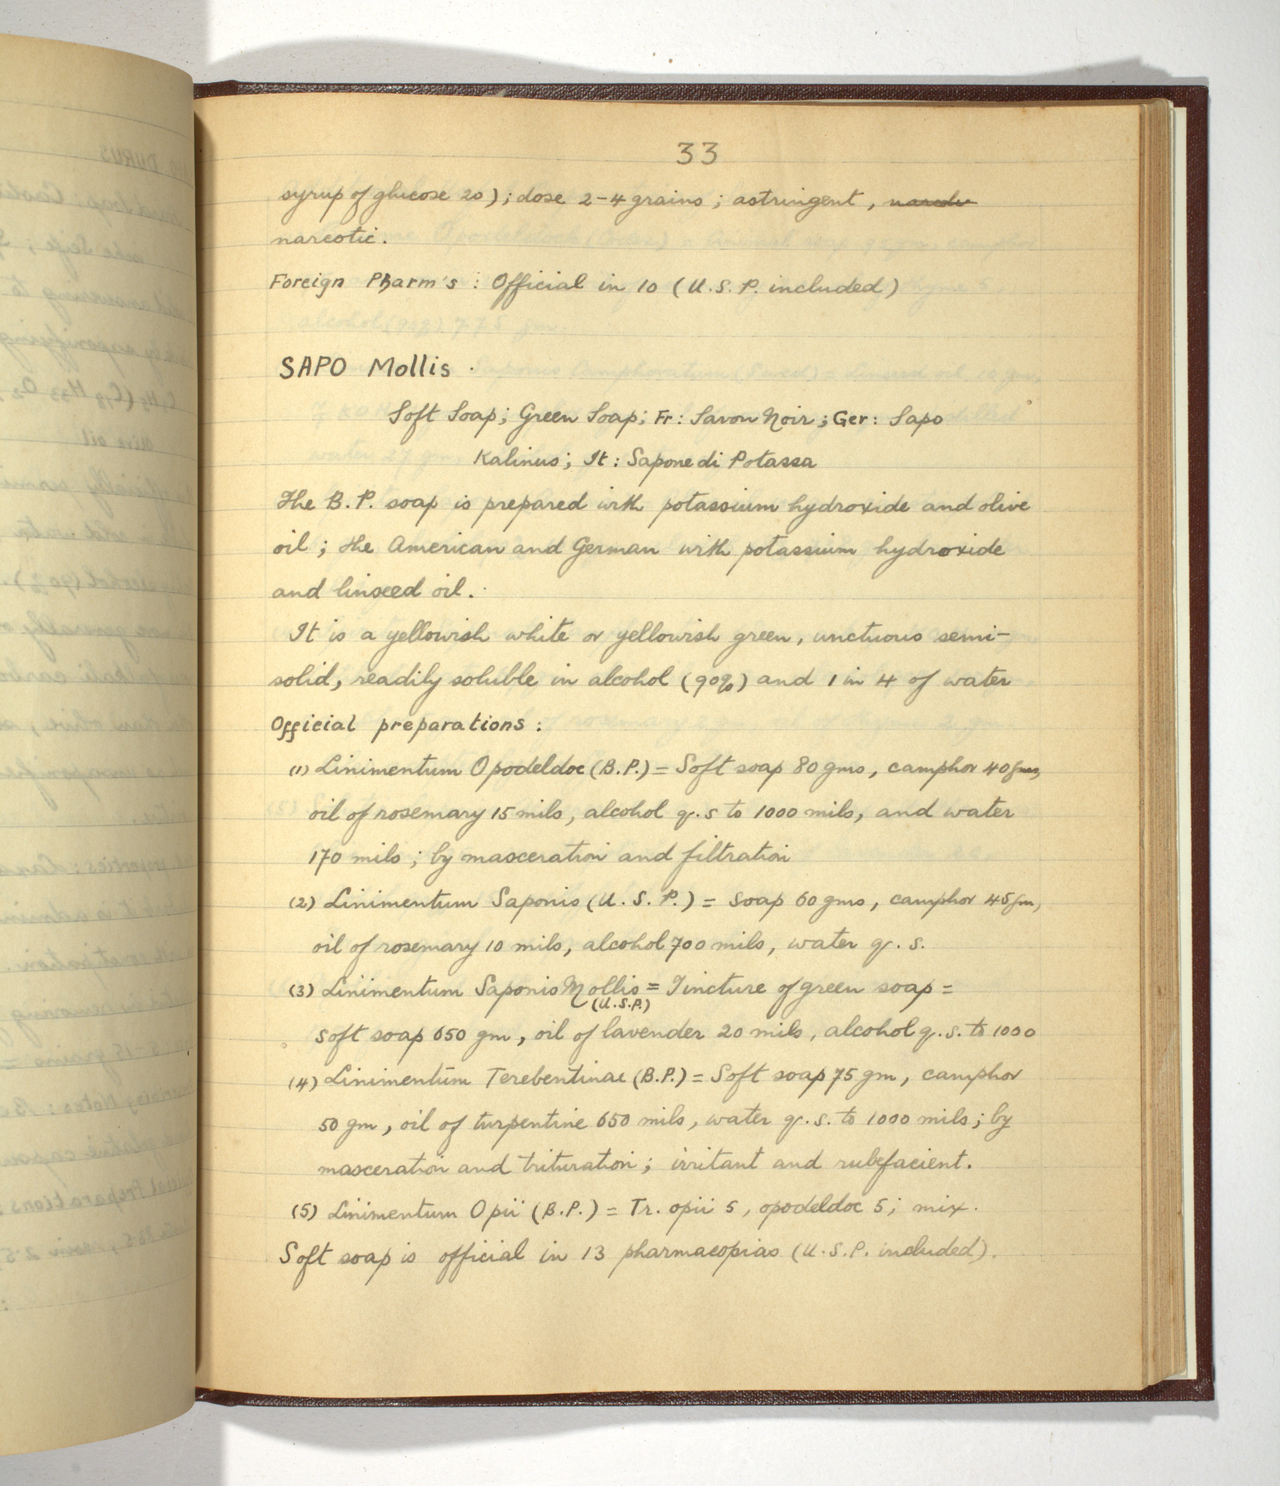 33
syrup of glucose 20); dose 2-4 grains; astringent,
narcotic.
Foreign Pharm's : Official in 10 (U.S.P. included)
SAPO Mollis.
Soft Soap; Green Soap; Fr: Savon Noir; Ger: Sapo
Kalinus; It: Sapone di Potassa
The B.P. soap is prepared with potassium hydroxide and olive
oil; the American and German with potassium hydroxide
and linseed oil.
It is a yellowish white or yellowish green, unctuous semi-
solid, readily soluble in alcohol (90%) and 1 in 4 of water
Official preparations:
(1) Linimentum Opodeldoc (B.P.) = Soft soap 80 gms, camphor 40 gms,
oil of rosemary 15 mils, alcohol q.s to 1000 mils, and water
170 mils; by masceration and filtration
(2) Linimentum Saponis (U.S.P.) = soap 60 gms, camphor 45 gm,
oil of rosemary 10 mils, alcohol 700 mils, water q.s.
(3) Linimentum Saponis Mollis = Tincture of green soap =
(U.S.P.)
Soft soap 650 gm, oil of lavender 20 mils, alcohol q.s. to 1000
(4) Linimentum Terebentinae (B.P.) = Soft soap 75 gm, camphor
50 gm, oil of turpentine 650 mils, water q.s. to 1000 mils; by
masceration and trituration; irritant and rubefacient.
(5) Linimentum Opii (B.P.) = Tr. opii 5, opodeldoc 5; mix.
Soft soap is official in 13 pharmacopias (U.S.P. included).